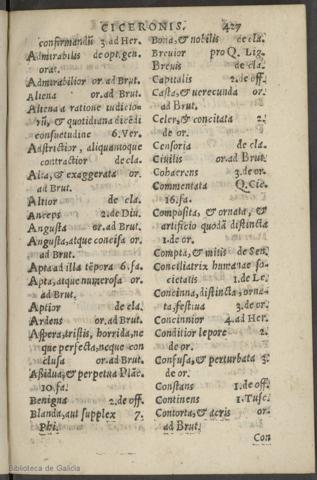 CICERONIS. 427
confirmandū 3. ad Her.
Admirabilis de opt. gen.
orat.
Admirabilior or. ad Brut.
Aliena or. ad Brut.
Aliena a ratione iudicio-
rũ, & quotidiana dicēdi
consuetudine 6. Ver.
Adstrictior, aliquantoque
contractior de cla.
Alta, & exaggerata or.
ad Brut.
Altior de cla.
Anceps 2. de Diu.
Angusta or. ad Brut.
Angusta, atque concisa or.
ad Brut.
Apta ad illa tēpora 6. fa.
Apta, atque numerosa or.
ad Brut.
Aptior de cla.
Ardens or. ad Brut.
Aspera, tristis, horrida, ne
que perfecta, neque con
clusa or. ad Brut.
Aßidua, & perpetua Plāc.
10. fa.
Benigna 2. de off.
Blanda, aut supplex 7.
Phi.
Bona, & nobilis de cla.
Breuior pro Q. Lig.
Breuis de cla.
Capitalis 2. de off.
Casta, & uerecunda or.
ad Brut.
Celer, & concitata 2.
de or.
Censoria de cla.
Ciuilis or. ad Brut.
Cohaerens 3. de or.
Commentata Q. Cic.
16. fa.
Composita, & ornata, &
artificio quodā distincta
1. de or.
Compta, & mitis de Sen.
Conciliatrix humanae so-
cietatis 1. de Le.
Concinna, distincta, orna-
ta, festiua 3. de or.
Concinnior 4. ad Her.
Conditior lepore 2.
de or.
Confusa, & perturbata 3.
de or.
Constans 1. de off.
Continens 1. Tusc.
Contorta, & acris or.
ad Brut.
Con
Biblioteca de Galicia